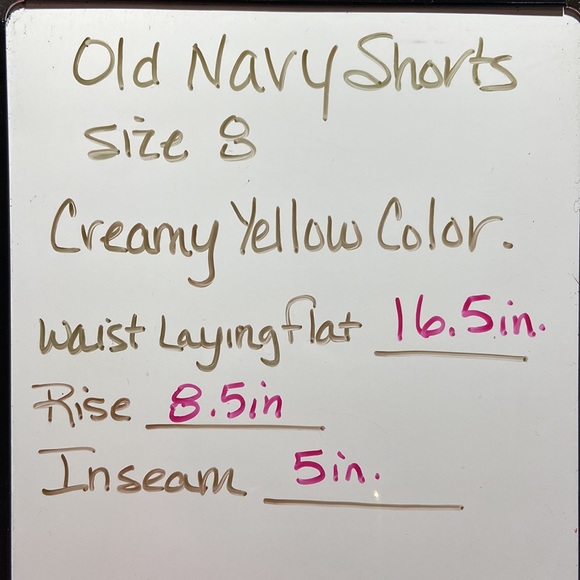 Old Navy Shorts
size 8
Creamy Yellow Color.
Waist Laying flat 16.5in.
Rise 8.5in
Inseam 5in.